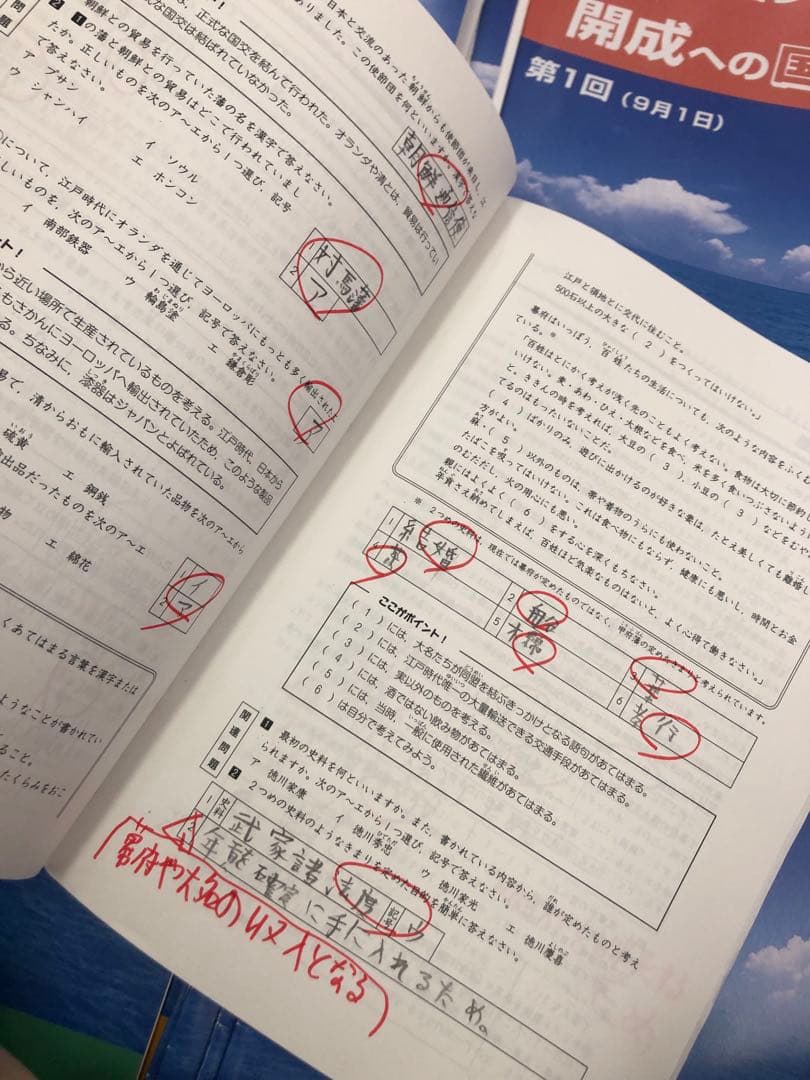 開成への
第1回（9月1日）
日本と交流のあった朝鮮からも使節団が来日し、江
ありました。この使節団を何といいますか。
朝鮮通信使
！
、正式な国交を結んで行われた。オランダや清とは、貿易は行ってい
な国交は結ばれていなかった。
2 1の藩と朝鮮との貿易を行っていた藩の名を漢字で答えなさい。
朝鮮との貿易はどこで行われていまし
たか。正しいものを次のア〜エから1つ選び、記号
で答えなさい。
ア プサン
イ ソウル
ウ シャンハイ
エ ホンコン
1 対馬藩
2 ア
について、江戸時代にオランダを通じてヨーロッパにもっとも多く輸出された
しいものを、次のア〜エから1つ選び、記号で答えなさい。
イ 南部鉄器
ウ 輪島塗
エ 鎌倉彫
ア
ポイント！
から近い場所で生産されているものを考える。江戸時代、日本から
もさかんにヨーロッパへ輸出されていたため、このような製品
る。ちなみに、漆器はジャパンとよばれている。
易で、清からおもに輸入されていた品物を次のア〜エから
硫黄
エ 銅銭
出品だったものを次のア〜エ
物
エ 綿花
1 イ
2 ア
くあてはまる言葉を漢字または
ようなことが書かれてい
ること。
たくらみをおこ
江戸と領地とに交代に住むこと。
500石以上の大きな（ 2 ）をつくってはいけない。」
幕府はいっぽう、百姓たちの生活についても、次のような内容をふくむ
ている。※
「百姓はとにかく考えが浅く先のこともよく考えない。食物は大切に節約し
いけない。麦・あわ・ひえ・大根などを食べ、米を多く食いつぶさないよう
と、ききんの時を考えれば、大豆の（ 3 ）、小豆の（ 3 ）などをむや
てるのはもったいないことだ。
（ 4 ）ばかりのみ、遊びに出かけるのが好きな妻は、たとえ美しくても離婚し
方がよい。
麻・（ 5 ）以外のものは、帯や着物のうらにも使わないこと。
たばこを吸ってはいけない。これは食べ物にもならず、健康にも悪いし、時間とお金
のむだだし、火の用心にも悪い。
親にはよくよく（ 6 ）をする心を深くもちなさい。
年貢さえ納めてしまえば、百姓ほど気楽なものはないと、よく心得て働きなさい。」
※ 2つめの史料は、現在では幕府が定めたものではなく、甲府藩の定めたきまりと考えられています。
1 結婚
2 船
3 葉
4 茶
5 木綿
6 孝行
ここがポイント！
（ 1 ）には、大名たちが同盟を結ぶきっかけとなる語句があてはまる。
（ 2 ）には、江戸時代唯一の大量輸送できる交通手段があてはまる。
（ 3 ）には、実以外のものを考える。
（ 4 ）には、酒ではない飲み物があてはまる。
（ 5 ）には、当時、一般に使用された繊維があてはまる。
（ 6 ）は自分で考えてみよう。
関連問題
1 最初の史料を何といいますか。また、書かれている内容から、誰が定めたものと考え
られますか。次のア〜エから1つ選び、記号で答えなさい。
ア 徳川家康
イ 徳川秀忠
ウ 徳川家光
エ 徳川慶喜
2 2つめの史料のようなきまりを定めた目的を簡単に答えなさい。
1 史料 武家諸法度 記号 ウ
2 年貢を確実に手に入れるため。
幕府や大名の収入となる